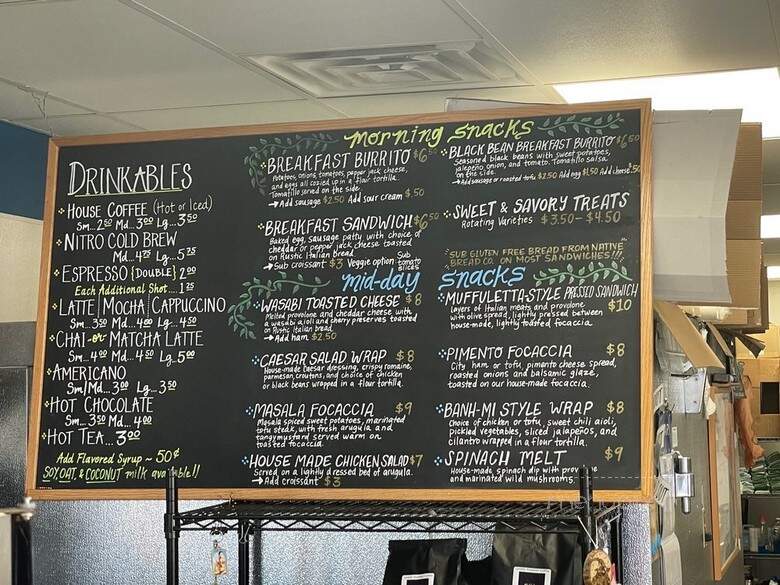 DRINKABLES
HOUSE COFFEE (Hot or Iced)
Sm...2⁵⁰ Md...3⁰⁰ Lg...3⁵⁰
NITRO COLD BREW
Md...4⁷⁵ Lg...5⁷⁵
ESPRESSO {DOUBLE} 2⁰⁰
Each Additional Shot....1²⁵
LATTE|MOCHA|CAPPUCCINO
Sm...3⁵⁰ Md...4⁰⁰ Lg...4⁵⁰
CHAI -or- MATCHA LATTE
Sm...4⁰⁰ Md...4⁵⁰ Lg...5⁰⁰
AMERICANO
Sm/Md...3⁰⁰ Lg...3⁵⁰
HOT CHOCOLATE
Sm...3⁵⁰ Md...4⁰⁰
HOT TEA...3⁰⁰
Add Flavored Syrup ~ 50¢
SOY, OAT, & COCONUT milk available!!
Morning Snacks
BREAKFAST BURRITO $6
Potatoes, onions, tomatoes, pepper jack cheese,
and eggs all cozied up in a flour tortilla.
Tomatillo served on the side.
→Add sausage $2.50 Add sour cream $.50
BREAKFAST SANDWICH $6⁵⁰
Baked egg, sausage patty with choice of
cheddar or pepper jack cheese toasted
on Rustic Italian bread.
→Sub croissant $3 Veggie option: Sub tomato slices
BLACK BEAN BREAKFAST BURRITO $6⁵⁰
Seasoned black beans with sweet potatoes,
jalapeño, onion, and tomato. Tomatillo salsa
on the side.
→Add sausage or roasted tofu $2.50 Add egg $1.50 Add cheese $.50
SWEET & SAVORY TREATS
Rotating Varieties $3.50-$4.50
*SUB GLUTEN FREE BREAD FROM NATIVE
BREAD CO. ON MOST SANDWICHES!!!*
mid-day Snacks
WASABI TOASTED CHEESE $8
Melted provolone and cheddar cheese with
a wasabi aioli and cherry preserves toasted
on Rustic Italian bread.
→Add ham $2.50
CAESAR SALAD WRAP $8
House-made Caesar dressing, crispy romaine,
parmesan, croutons, and choice of chicken
or black beans wrapped in a flour tortilla.
MASALA FOCACCIA $9
Masala spiced sweet potatoes, marinated
tofu steak, with fresh arugula and
tangy mustard served warm on
toasted focaccia.
HOUSE MADE CHICKEN SALAD $7
Served on a lightly dressed bed of arugula.
→Add croissant $3
MUFFULETTA-STYLE PRESSED SANDWICH
$10
Layers of Italian meats and provolone
with olive spread, lightly pressed between
house-made, lightly toasted focaccia.
PIMENTO FOCACCIA $8
City ham or tofu, pimento cheese spread,
roasted onions and balsamic glaze,
toasted on our house-made focaccia.
BANH-MI STYLE WRAP $8
Choice of chicken or tofu, sweet chili aioli,
pickled vegetables, sliced jalapeños, and
cilantro wrapped in a flour tortilla.
SPINACH MELT $9
House-made spinach dip with
and marinated wild mushrooms.